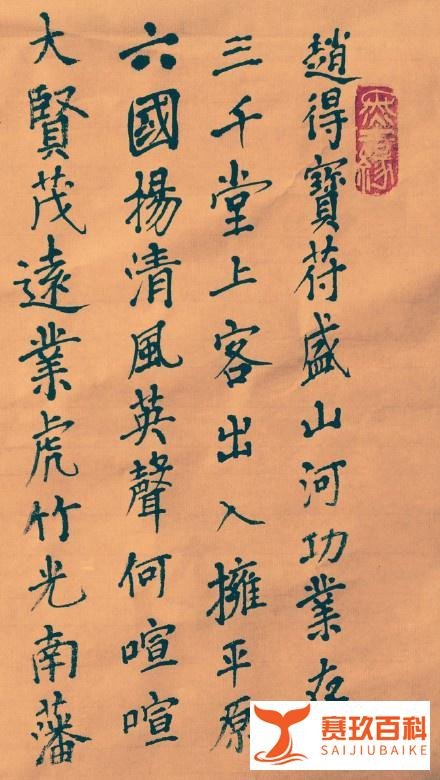 趙得寶符盛山河功業存
三千堂上客出入擁平原
六國揚清風英聲何喧喧
大賢茂遠業虎竹光南藩
赛玖百科
SAIJIUBAIKE